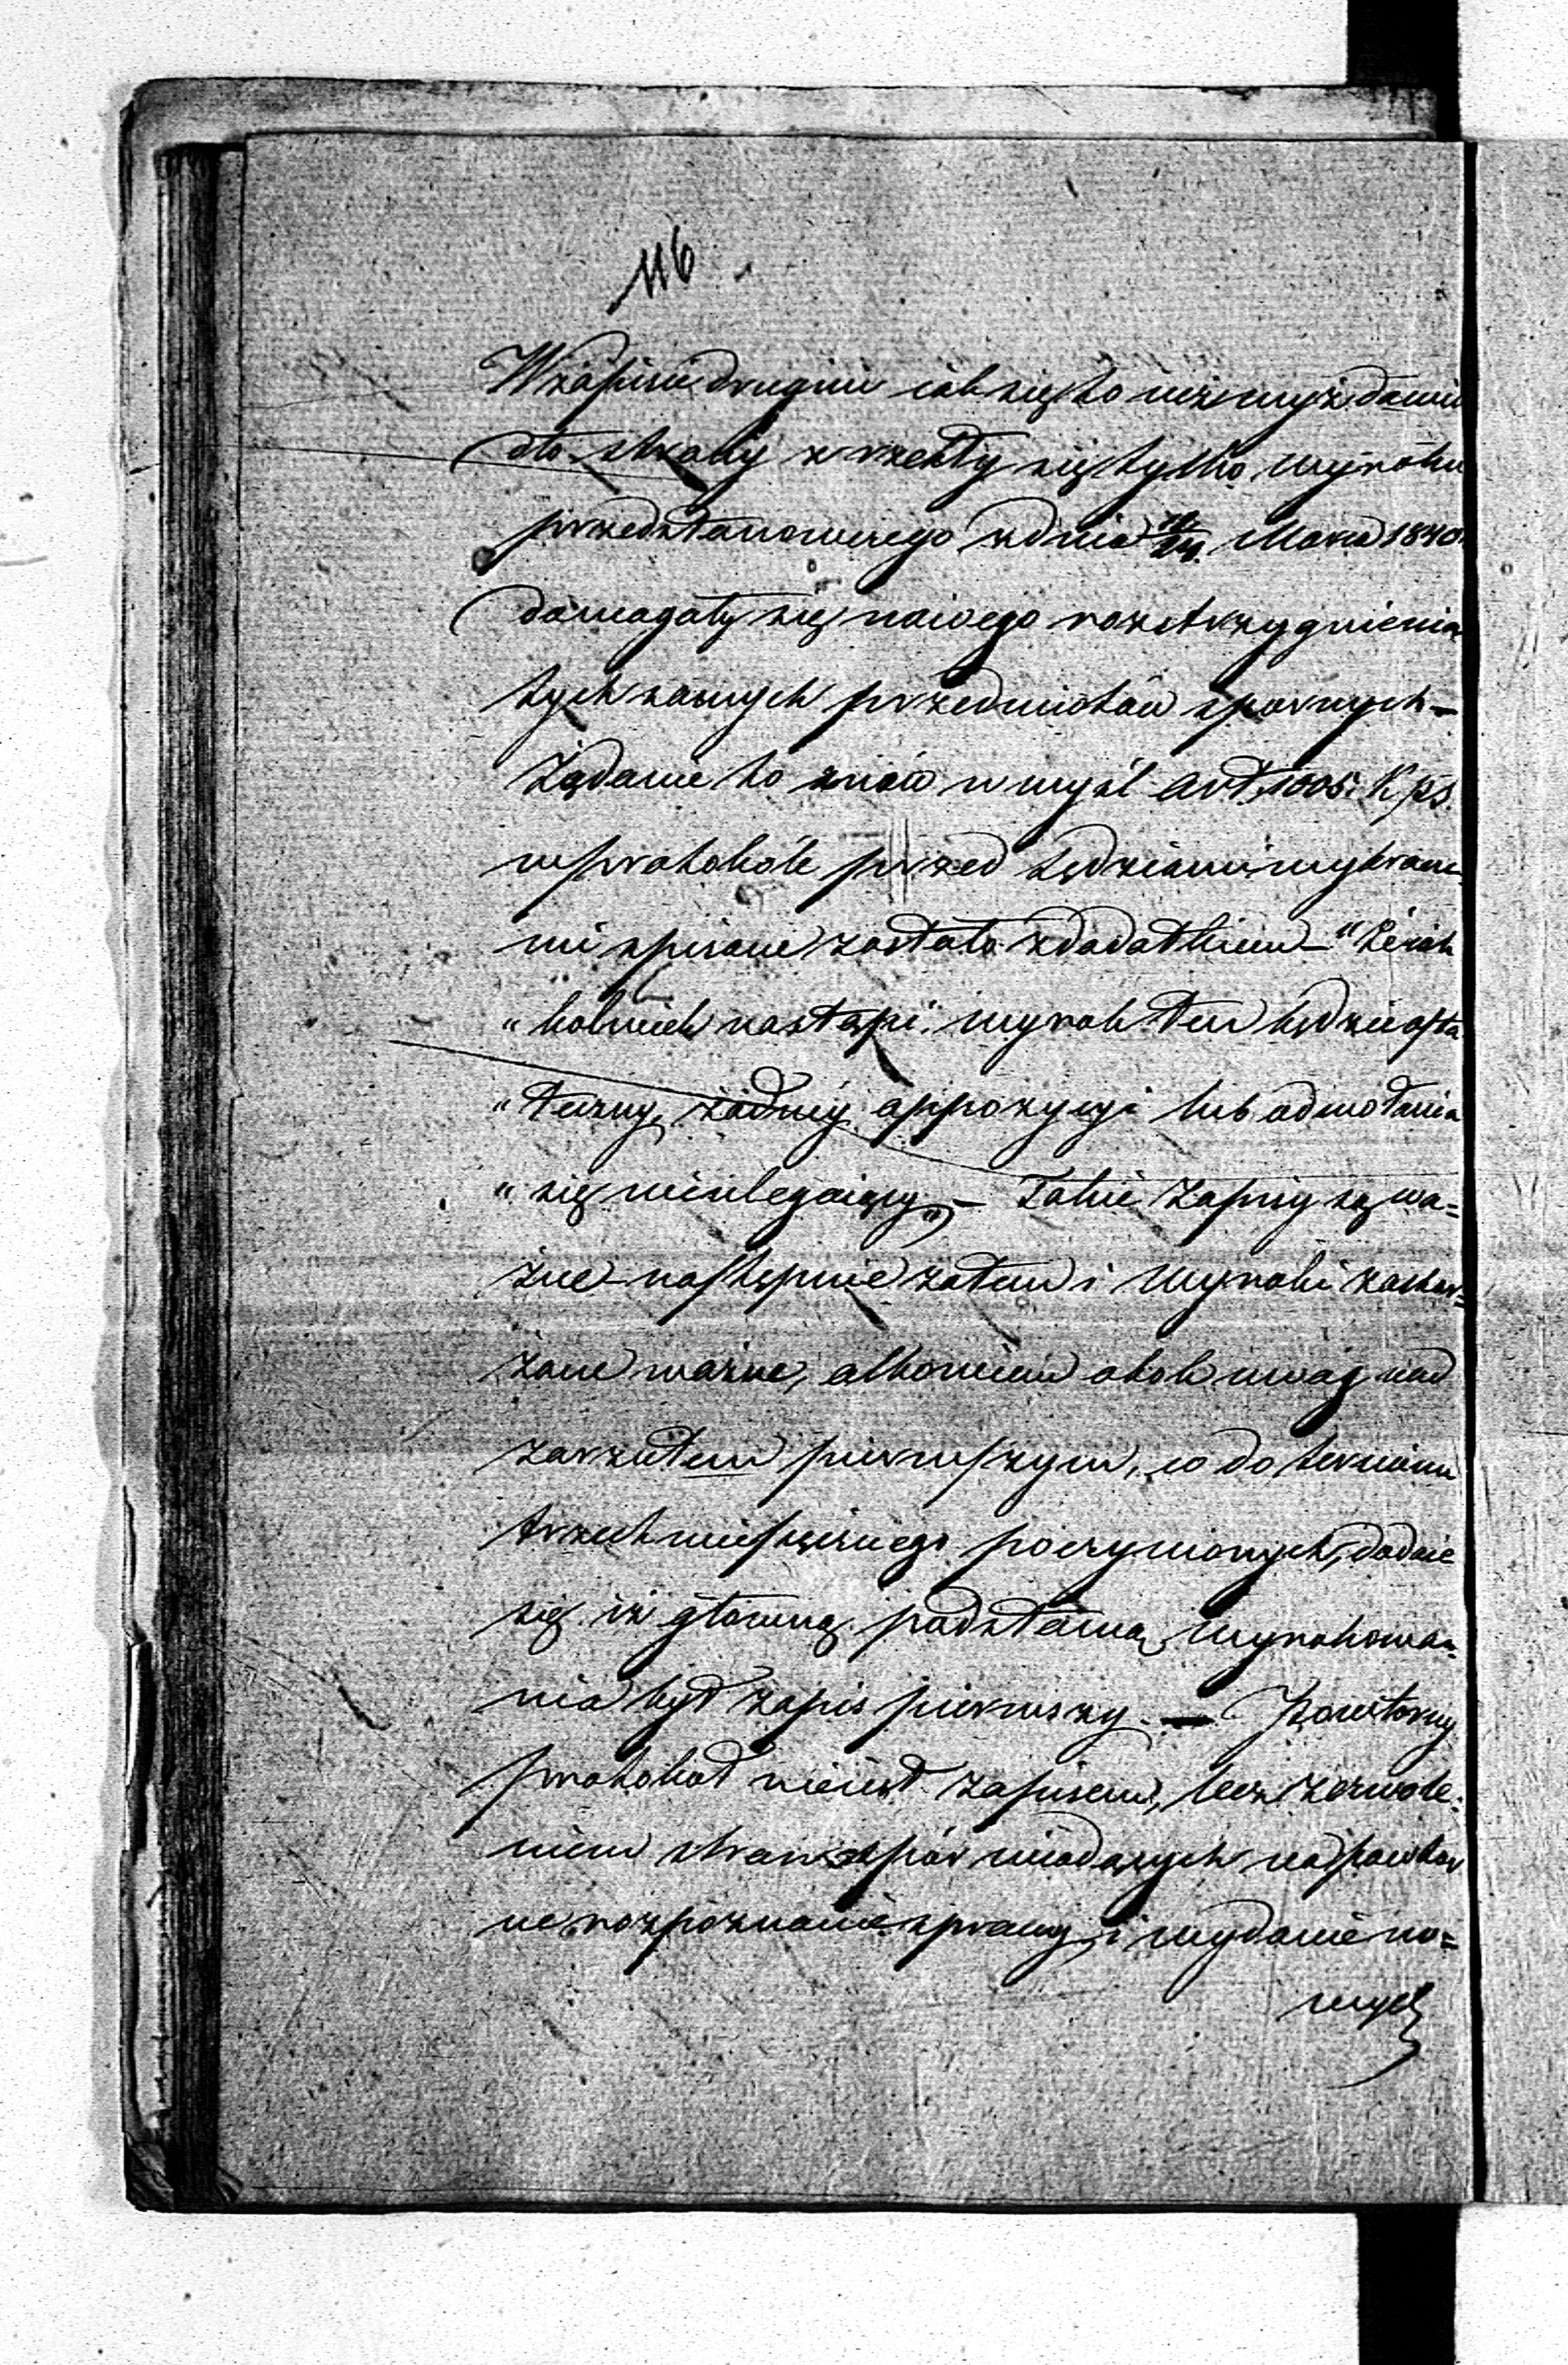 116
W zapisie drugim iak się to iuż wyżej dawie
dło strony zrzekły się tylko wyroku
przedstanowczego z dnia 12/24 Marca 1840.
domagały się nowego rozstrzygnienia
tych samych przedmiotów spornych –
Żądanie to znów w myśl Art. 1005. K.p.s.
w protokóle przed Sędziami wybrane-
mi spisane zostało z dodatkiem – "że iak
"kolwiek nastąpi wyrok ten będzie osta
"teczny, żadney oppozycyi lub odwołania
"się nieulegaiący" – Takie zapisy są wa=
żne następnie zatem i Wyroki zaskar=
żone ważne, albowiem obok uwag nad
zarzutem pierwszym, co do terminu
trzechmiesięcznego poczynionych, dodaie
się iż główną podstawą wyrokowa=
nia był zapis pierwszy. – Powtórny
protokół nieiest zapisem, lecz zezwole=
niem stron spór wiodących na powtór
ne rozpoznanie sprawy i wydanie no=
wych